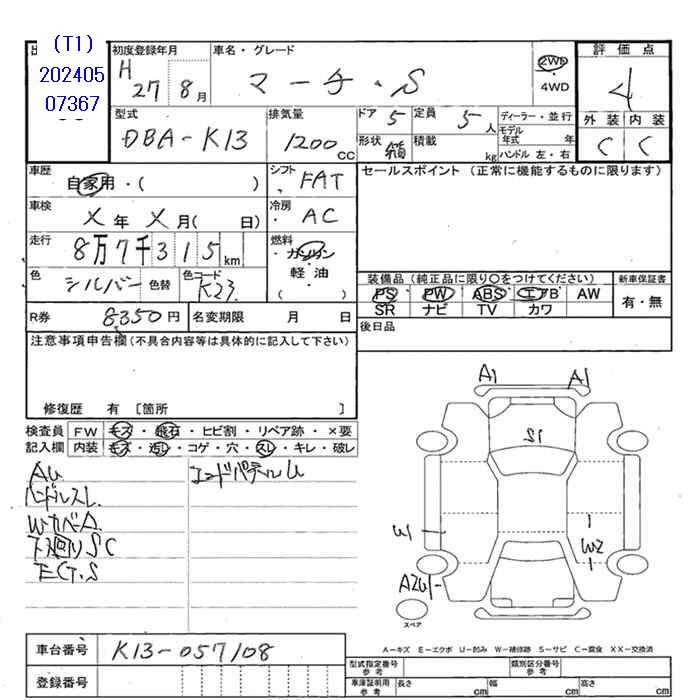 (T1)
202405
07367
初度登録年月
H27 8月
車名・グレード
マーチ・S
2WD
4WD
評価点
4
外装 内装
C C
型式
DBA-K13
排気量
1200 CC
ドア 5
定員 5人
ディーラー・並行
モデル年式 年
形状
積載 kg
ハンドル 左・右
車歴
自家用・( )
シフト
FAT
セールスポイント (正常に機能するものに限ります)
車検
X年X月( 日)
冷房
AC
走行
8万7千315km
燃料
ガソリン
軽油
( )
色
シルバー
色替
色コード
K23
装備品 (純正品に限り○をつけてください)
新車保証書
PS PW ABS エアB AW
有・無
SR ナビ TV カワ
R券 8350円
名変期限 月 日
後日品
注意事項申告欄 (不具合内容等は具体的に記入して下さい)
修復歴 有 [箇所 ]
検査員 FW キズ・飛石・ヒビ割・リペア跡・×要
記入欄 内装 キズ・汚れ・コゲ・穴・スレ・キレ・破レ
AU
ハンドルスレ
WカバーA
下廻りSC
EG.S
エンドパネルU
A1
A1
S1
W1
W2
AZU1
スペア
A-キズ E-エクボ U-凹み W-補修跡 S-サビ C-腐食 XX-交換済
車台番号 K13-057108
登録番号
型式指定番号 参考
類別区分番号 参考
車庫証明用 参考
長さ cm
幅 cm
高さ cm